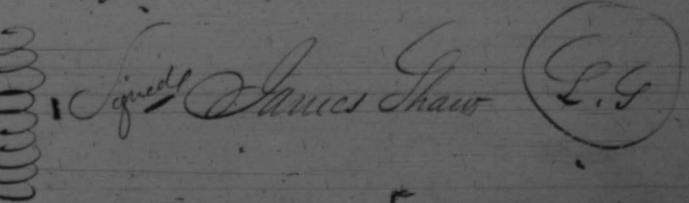 Signed James Shaw L.S